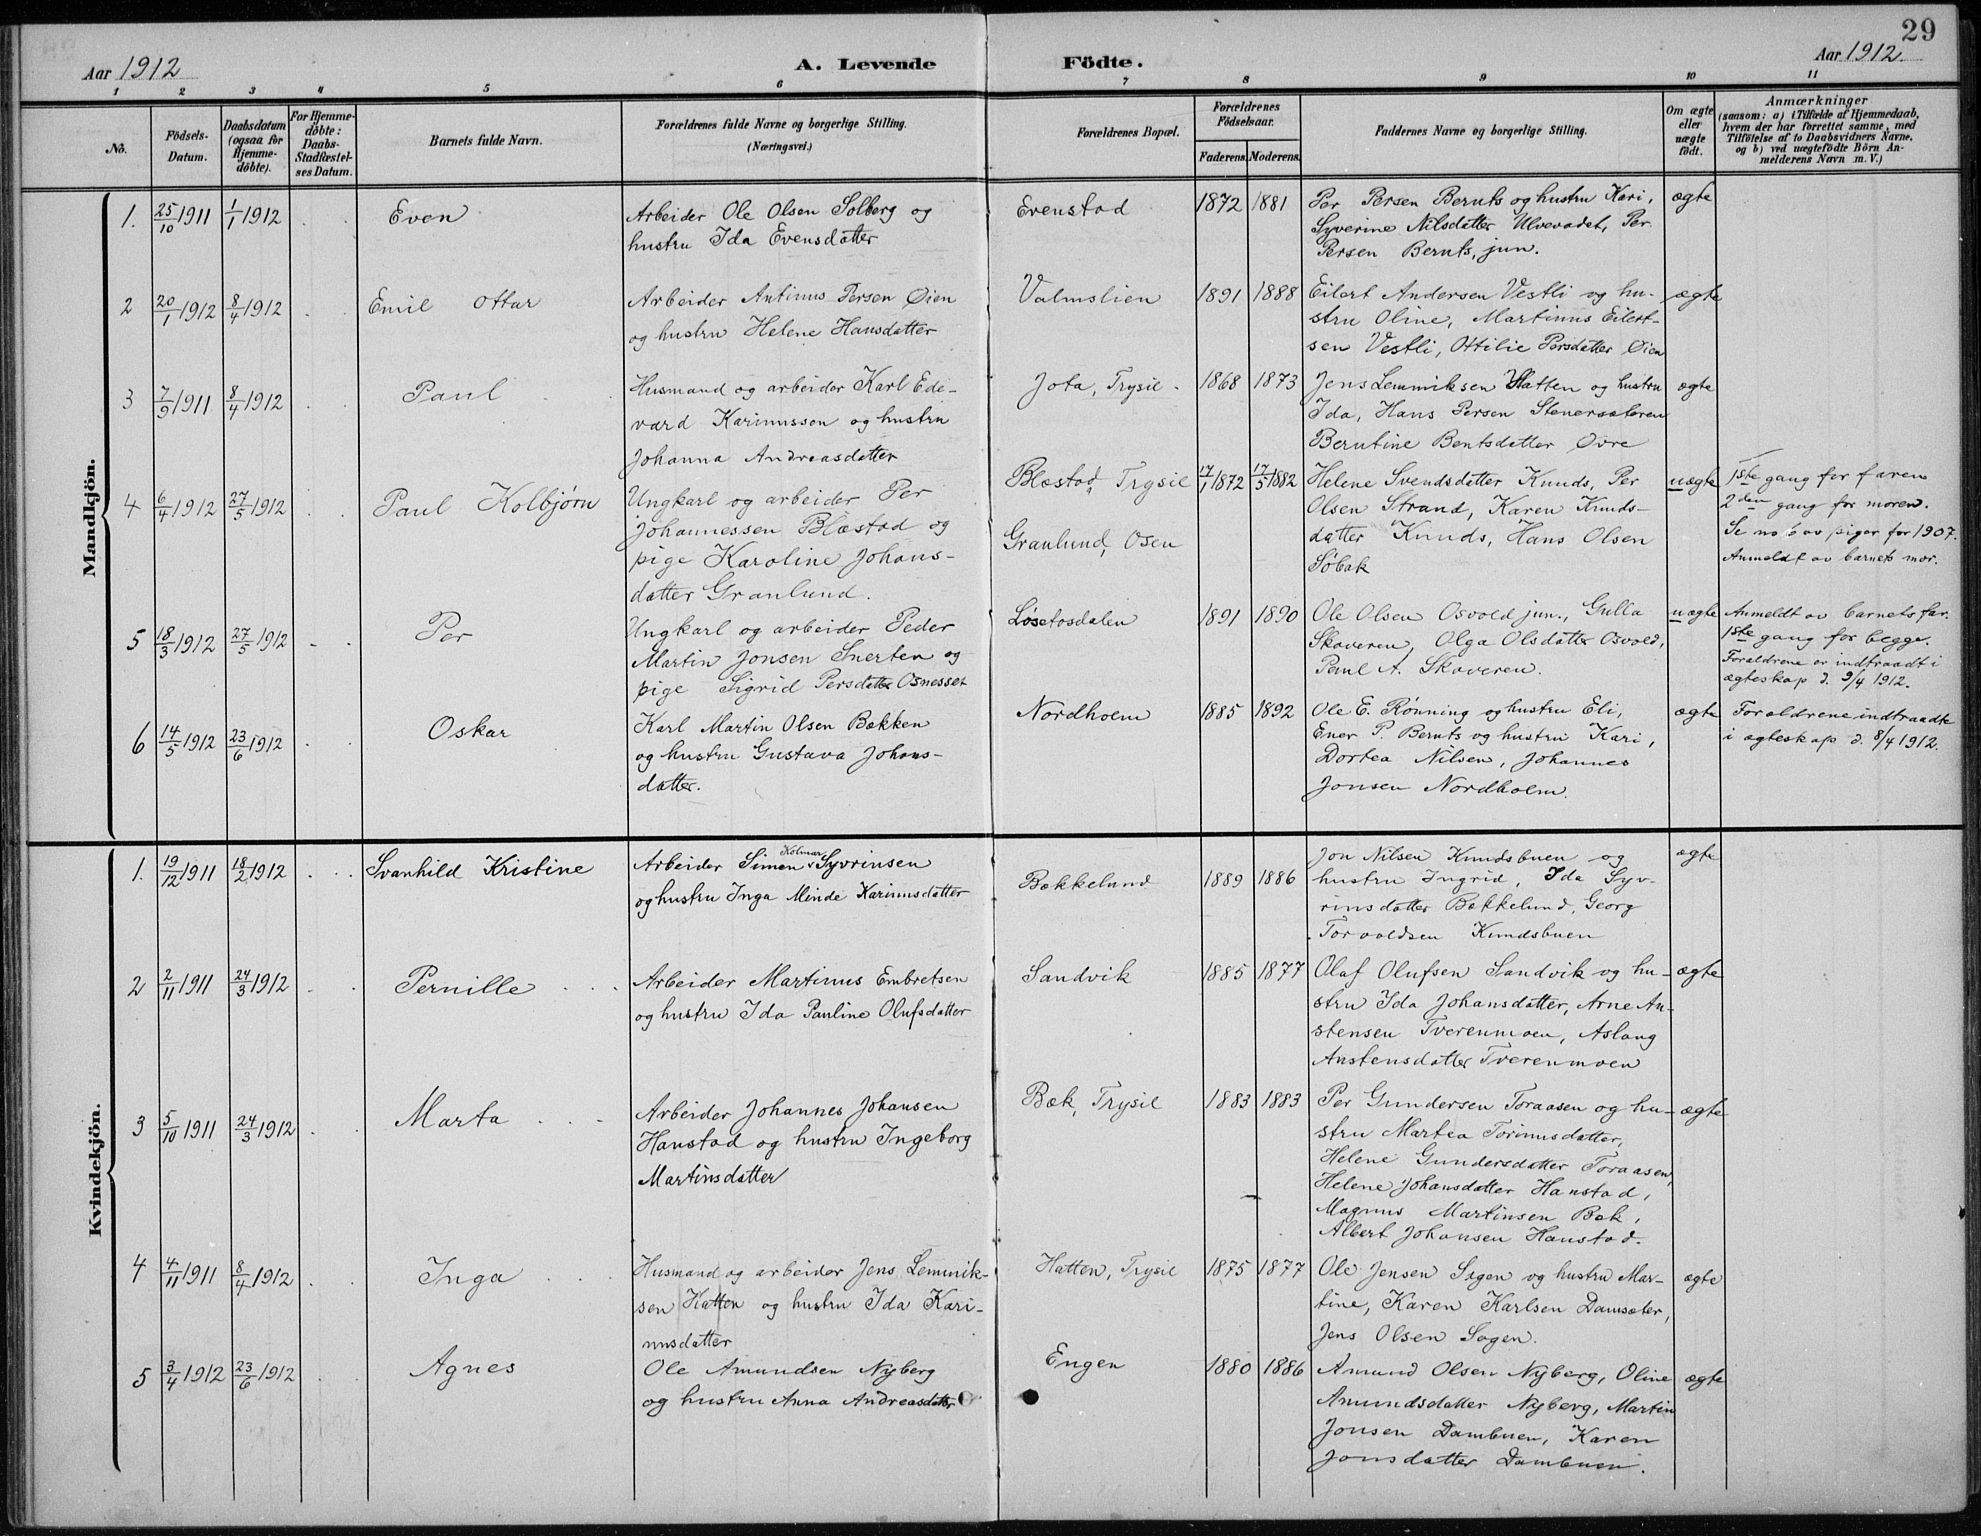 29
Aar 1912
A. Levende Födte.
Aar 1912.
1 2 3 4 5 6 7 8 9 10 11
No.
Födsels-Datum.
Daabsdatum (ogsaa för Hjemme-döbte).
For Hjemme-döbte: Daabs-Stadfæstel-ses Datum.
Barnets fulde Navn.
Forældrenes fulde Navne og borgerlige Stilling.
(Næringsvei.)
Forældrenes Bopæl.
Forældrenes Födselsaar.
Faderens. Moderens.
Faddernes Navne og borgerlige Stilling.
Om ægte eller uægte födt.
Anmærkninger
(saasom: a) i Tilfælde af Hjemmedaab,
hvem der har forrettet samme, med
Tilföielse af to Daabsvidners Navne.
og b) ved uægtefödte Börn An-
melderens Navn m. V.)
Mandkjön.
1. 25/10 1911 1/1 1912 Even Arbeider Ole Olsen Solberg og Evenstad 1872 1881 Per Persen Beruts og hustru Kari, ægte
hustru Ida Evensdatter Syverine Nilsdatter Ulvevadet, Per
Persen Beruts, jun.
2 20/1 1912 8/4 1912 Emil Ottar Arbeider Antinus Persen Øien Valmslien 1891 1888 Eilert Andersen Vestli og hu- ægte
og hustru Helene Hansdatter stru Oline, Martinus Eilert-
sen Vestli, Ottilie Persdatter Øien
3 7/9 1911 8/4 1912 Paul Husmand og arbeider Karl Ede- Jota, Trysil. 1868 1873 Jens Lemmiksen Hatten og hustru ægte
vard Karinussen og hustru Ida, Hans Persen Stenersæteren
Johanna Andreasdatter Berntine Bentsdatter Øvre
4 6/4 1912 27/5 1912 Paul Kolbjørn Ungkarl og arbeider Per Blæstad, Trysil 17/1 1872 17/5 1882 Helene Svendsdatter Knuds, Per uægte 1ste gang for faren
Johannessen Blæstad og Olsen Strand, Karen Knuds- 2den gang for moren.
pige Karoline Johans- Granlund, Osen datter Knuds, Hans Olsen Se no 6 av piger for 1907.
datter Granlund. Søbak Anmeldt av barnets mor.
5 18/3 1912 27/5 1912 Per Ungkarl og arbeider Peder Løsetosdalen 1891 1890 Ole Olsen Osvold jun., Gulla uægte Anmeldt av barnets far.
Martin Jonsen Snerten og Skaveren, Olga Olsdatter Osvold, 1ste gang for begge.
pige Sigrid Persdatter Osneset Paul A. Skaveren. Forældrene er indtraadt i
ægteskap d. 9/4 1912.
6 14/5 1912 23/6 1912 Oskar Karl Martin Olsen Bækken Nordholm 1885 1892 Ole E. Rønning og hustru Eli, ægte Forældrene indtraadte
og hustru Gustava Johans- Ener P. Beruts og hustru Kari, i ægteskap d. 8/4 1912.
datter. Dortea Nilsen, Johannes
Jonsen Nordholm.
Kvindekjön.
1. 19/12 1911 18/2 1912 Svanhild Kristine Arbeider Simen Kolmar Syvrinsen Bækkelund 1889 1886 Jon Nilsen Knudsbuen og ægte
og hustru Inga Minde Karinusdatter hustru Ingrid, Ida Syv-
rinsdatter Bækkelund, Georg
Torvaldsen Knudsbuen
2 2/11 1911 24/3 1912 Pernille Arbeider Martinus Embretsen Sandvik 1885 1877 Olaf Olufsen Sandvik og hu- ægte
og hustru Ida Pauline Olufsdatter stru Ida Johansdatter, Arne An-
stensen Tverenmoen, Aslaug
Anstensdatter Tverenmoen
3 5/10 1911 24/3 1912 Marta Arbeider Johannes Johansen Bæk, Trysil 1883 1883 Per Gundersen Toraasen og hu- ægte
Hanstad og hustru Ingeborg stru Martea Torinusdatter,
Martinsdatter Helene Gundersdatter Toraasen,
Helene Johansdatter Hanstad,
Magnus Martinsen Bæk,
Albert Johansen Hanstad.
4 4/11 1911 8/4 1912 Inga Husmand og arbeider Jens Lemmik- Hatten, Trysil 1875 1877 Ole Jensen Sagen og hustru Mar- ægte
sen Hatten og hustru Ida Kari- tine, Karen Karlsen Damsæter,
nusdatter Jens Olsen Sagen.
5 3/4 1912 23/6 1912 Agnes Ole Amundsen Nyberg Engen 1880 1886 Amund Olsen Nyberg, Oline ægte
og hustru Anna Andreasdatter Amundsdatter Nyberg, Martin
Jonsen Dambuen, Karen
Jonsdatter Dambuen.